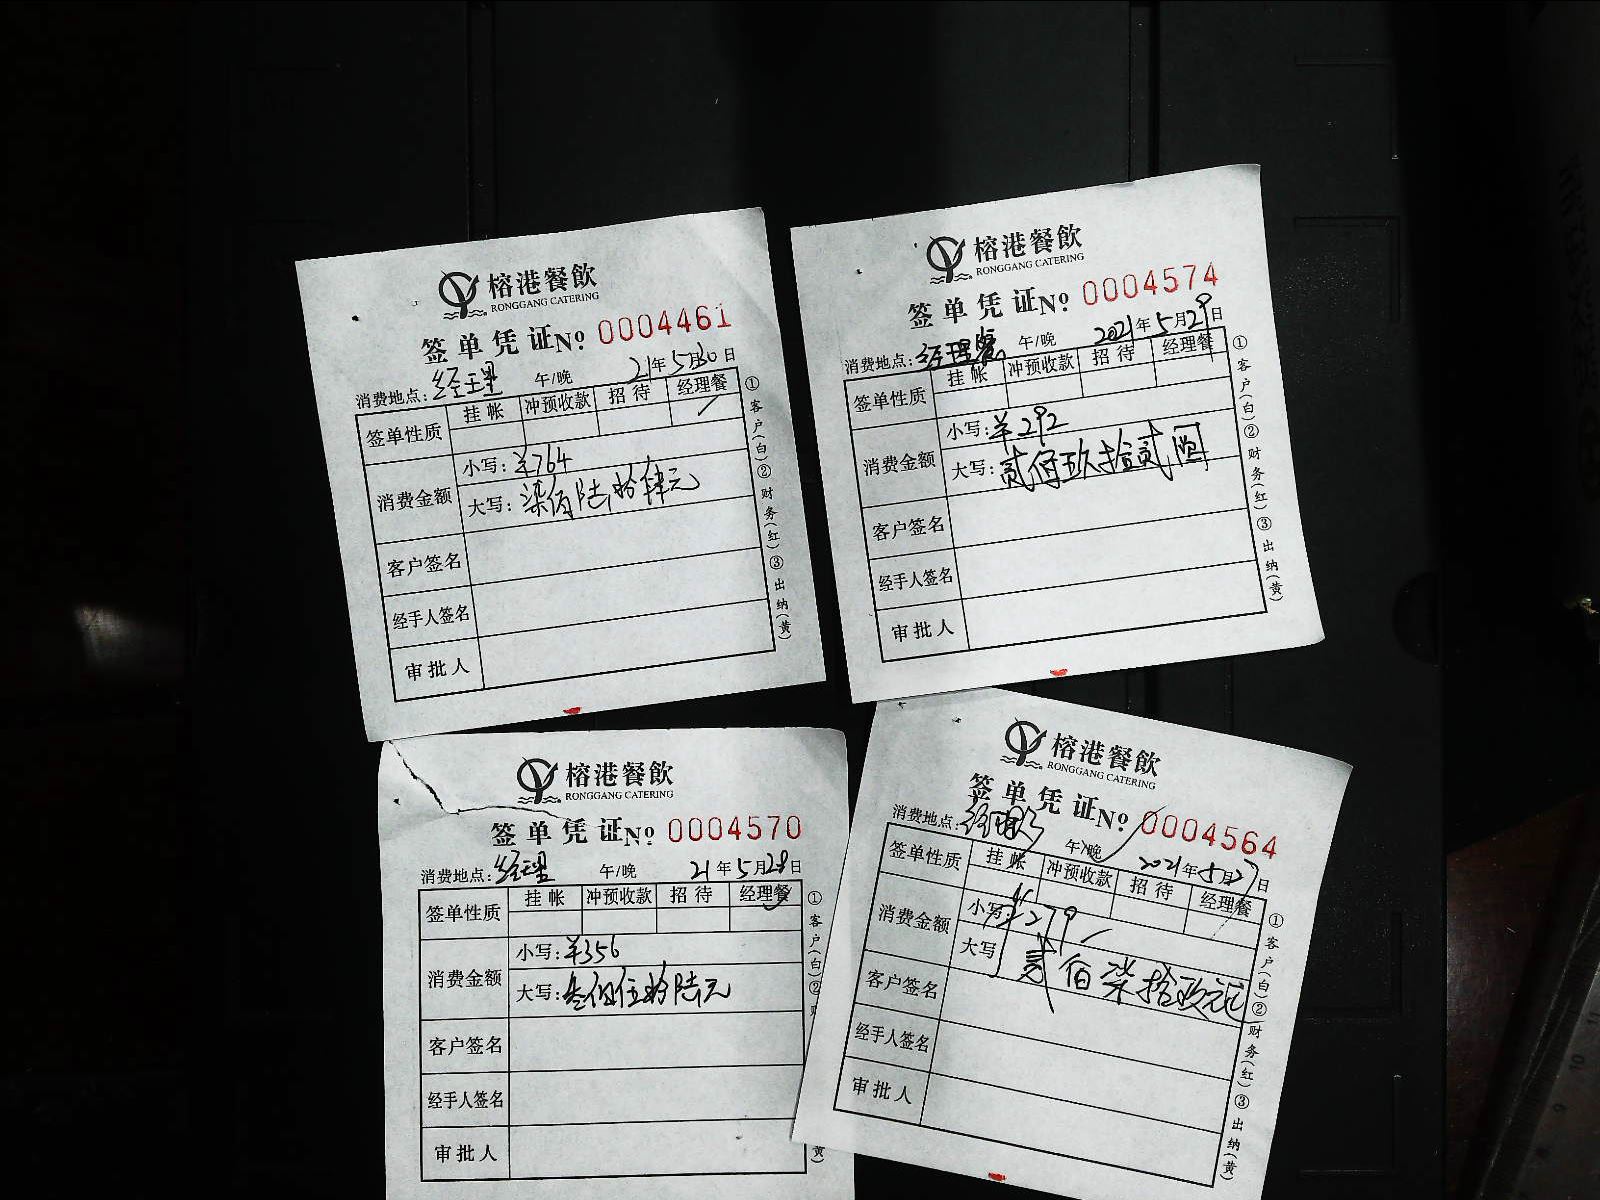 榕港餐飲
RONGGANG CATERING
签单凭证No. 0004461
消费地点: 经理 午/晚 21年5月30日
签单性质 挂帐 冲预收款 招待 经理餐
消费金额 小写: ¥764
大写: 柒佰陆拾肆元
客户签名
经手人签名
审批人
①客户(白)②财务(红)③出纳(黄)
榕港餐飲
RONGGANG CATERING
签单凭证No. 0004574
消费地点: 经理餐 午/晚 2021年5月29日
签单性质 挂帐 冲预收款 招待 经理餐
消费金额 小写: ¥292
大写: 贰佰玖拾贰圆
客户签名
经手人签名
审批人
①客户(白)②财务(红)③出纳(黄)
榕港餐飲
RONGGANG CATERING
签单凭证No. 0004570
消费地点: 经理 午/晚 21年5月28日
签单性质 挂帐 冲预收款 招待 经理餐
消费金额 小写: ¥356
大写: 叁佰伍拾陆元
客户签名
经手人签名
审批人
①客户(白)②财
黄)
榕港餐飲
RONGGANG CATERING
签单凭证No. 0004564
消费地点: 午/晚 2021年5月27日
签单性质 挂帐 冲预收款 招待 经理餐
消费金额 小写: ¥279
大写 贰佰柒拾玖元
客户签名
经手人签名
审批人
①客户(白)②财务(红)③出纳(黄)